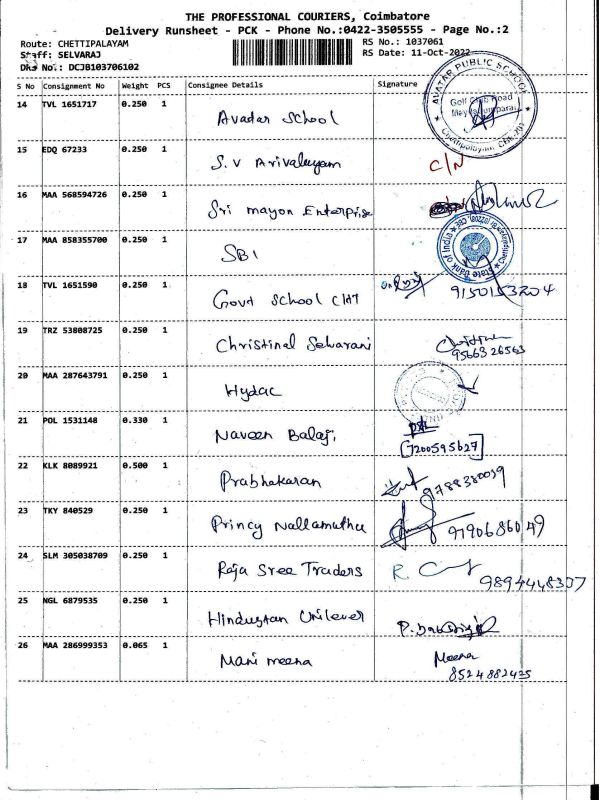 THE PROFESSIONAL COURIERS, Coimbatore
Delivery Runsheet - PCK - Phone No.:0422-3505555 - Page No.:2
Route: CHETTIPALAYAM RS No.: 1037061
Staff: SELVARAJ RS Date: 11-Oct-2022
DRS No.: DCJB103706102
S No Consignment No Weight PCS Consignee Details Signature
AVATAR PUBLIC SCHOOL
Golf Club Road
14 TVL 1651717 0.250 1 Avatar School
15 EDQ 67233 0.250 1 S.V Arivalayam C/N
16 MAA 568594726 0.250 1 Sri mayon Enterprise
17 MAA 858355700 0.250 1 SBI
State Bank of India
18 TVL 1651590 0.250 1 Govt School CHT 9150153204
19 TRZ 53808725 0.250 1 Christinal Selvarani
9566326563
20 MAA 287643791 0.250 1 Hydac
21 POL 1531148 0.330 1 Naveen Balaji
7200595627
22 KLK 8089921 0.500 1 Prabhakaran
9788380039
23 TKY 840529 0.250 1 Princy Nallamuthu 9790686049
24 SLM 305038709 0.250 1 Raja Sree Traders
9894448307
25 NGL 6879535 0.250 1 Hindustan Unilever
26 MAA 286999353 0.065 1 Mani meena Meena
8524882435